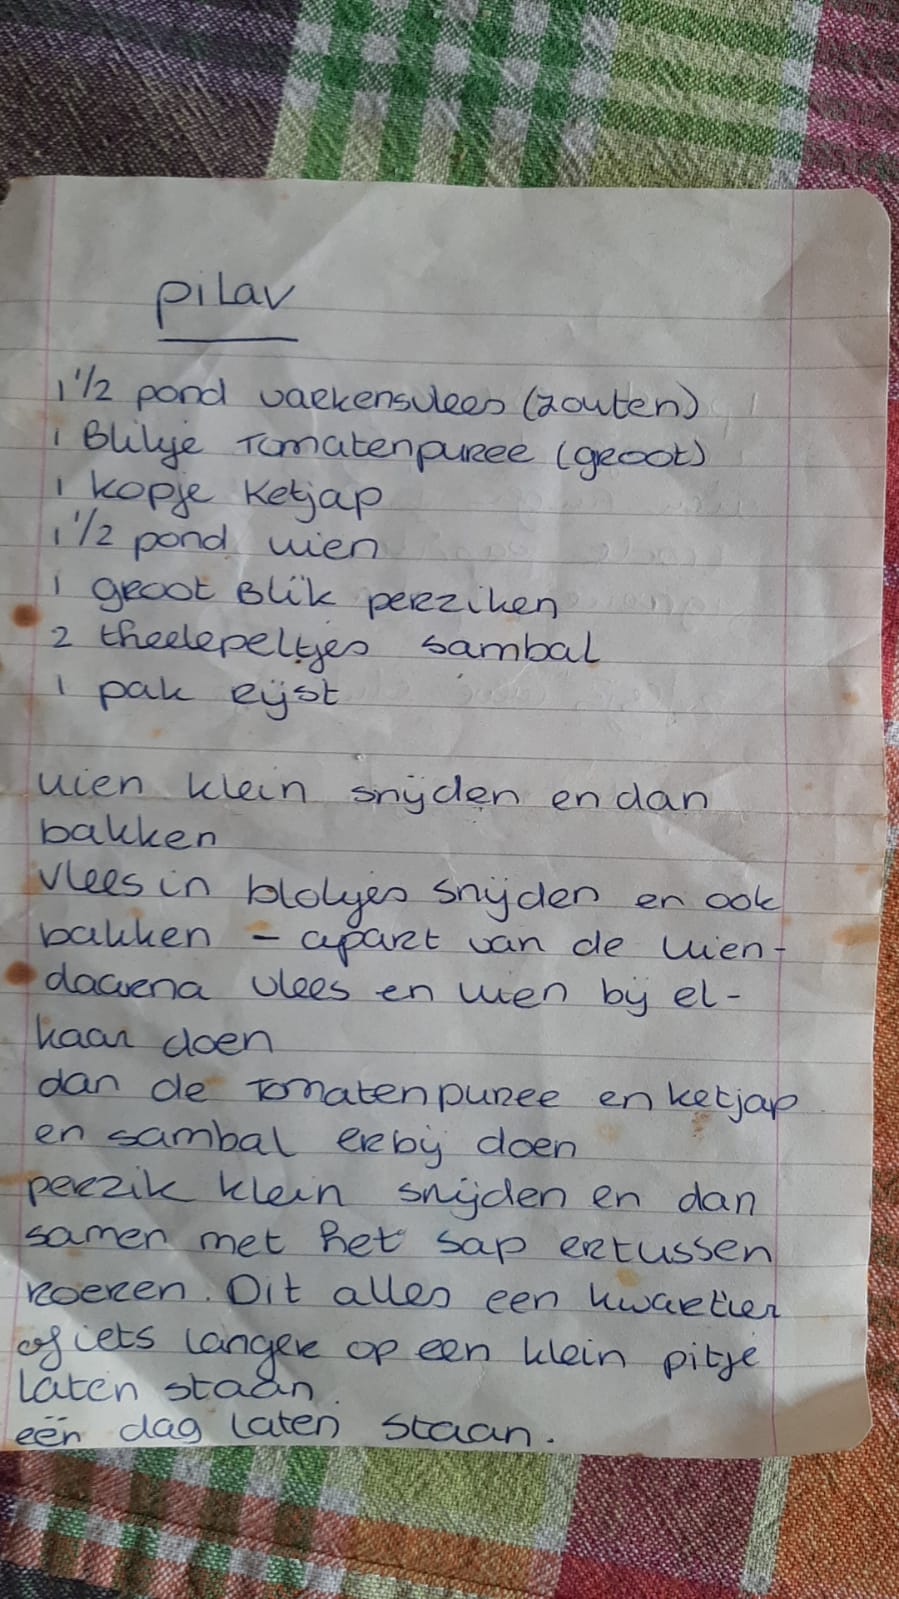 pilav
1 1/2 pond varkensvlees (zouten)
1 Blikje Tomatenpuree (groot)
1 kopje Ketjap
1 1/2 pond uien
1 groot Blik perziken
2 theelepeltjes sambal
1 pak rijst
uien klein snijden en dan
bakken
vlees in blokjes snijden en ook
bakken - apart van de uien-
daarna vlees en uien bij el-
kaar doen
dan de Tomatenpuree en ketjap
en sambal erbij doen
perzik klein snijden en dan
samen met het sap ertussen
roeren. Dit alles een kwartier
of iets langer op een klein pitje
laten staan.
eën dag laten staan.